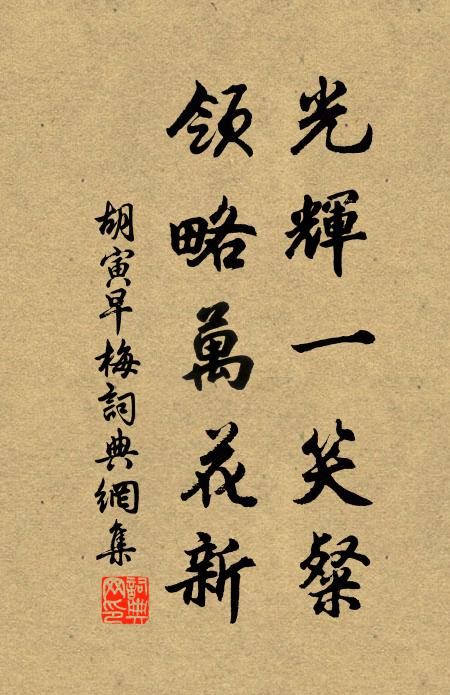 光輝一笑粲
領略萬花新
胡寅早梅詞典網集
詞典网印